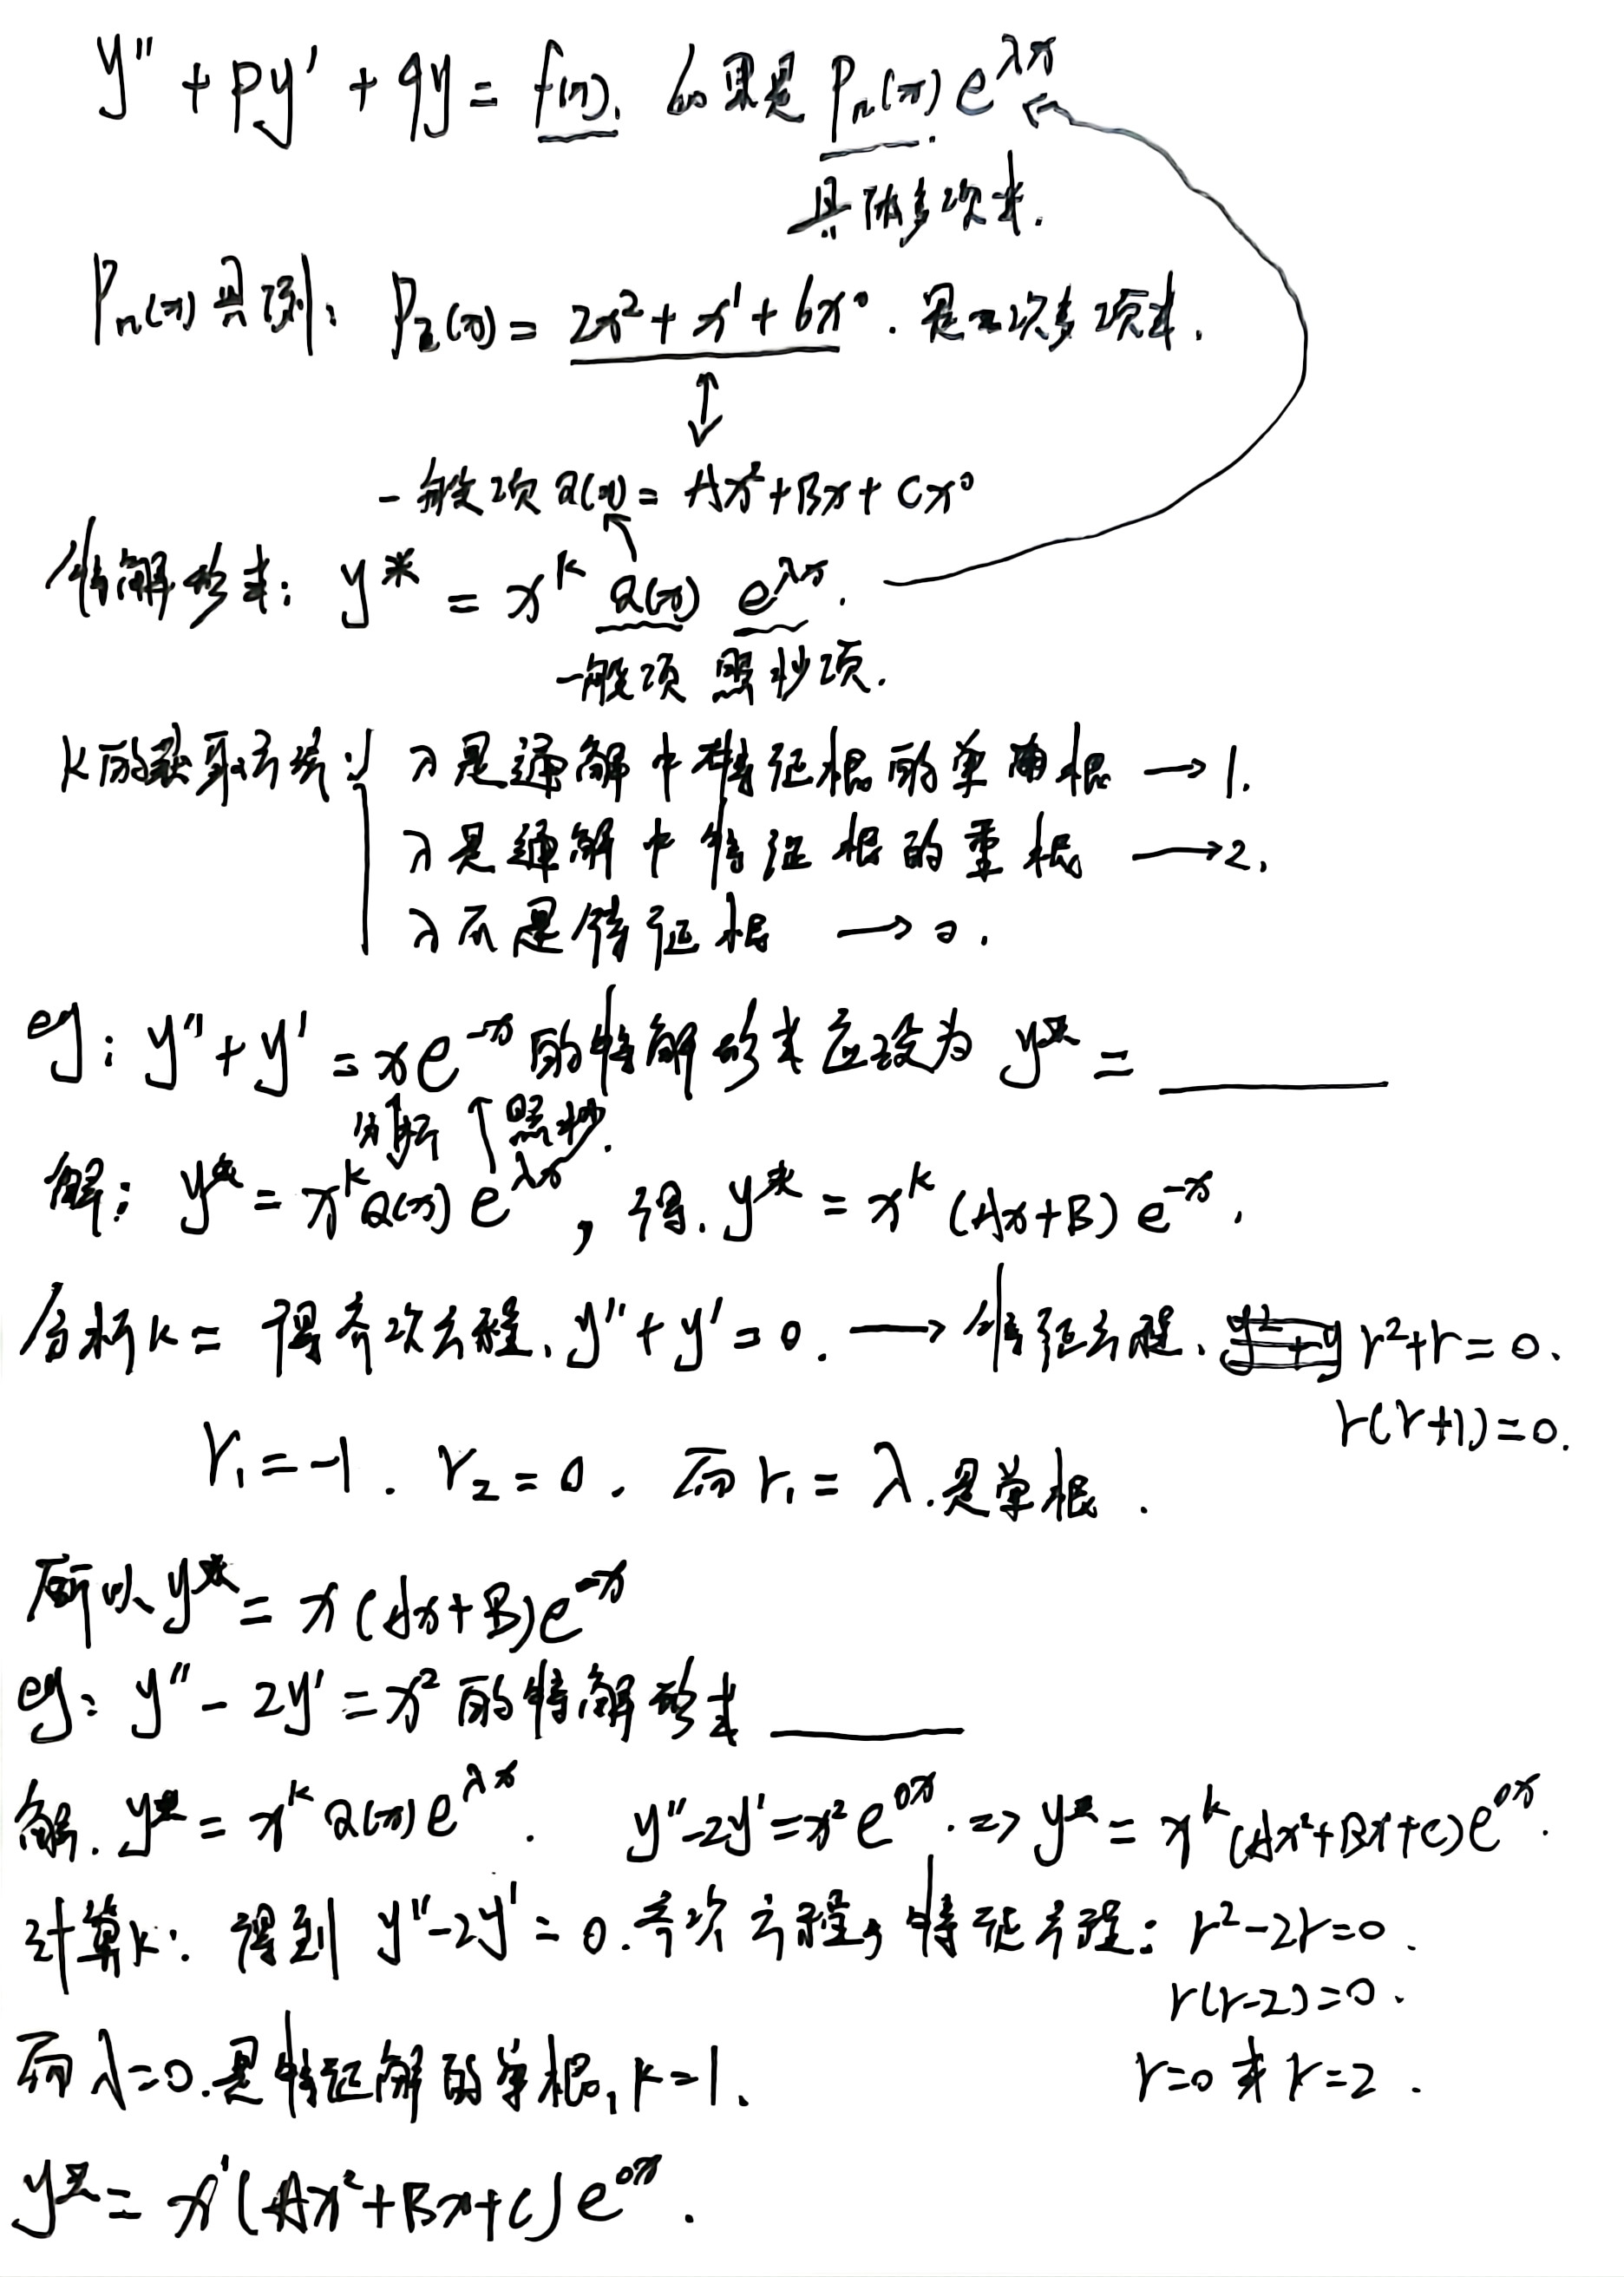 y'' + py' + qy = f(x). 如果是 Pₙ(x) e^{λx}
具体多项式.
Pₙ(x) 具例: P₂(x) = 2x² + x¹ + 6x⁰. 是二次多项式.
一般项 Q(x) = Ax² + Bx + Cx⁰
特解形式: y* = x^k Q(x) e^{λx}.
一般项 照抄项.
k的获取方法: λ是通解中特征根的单根 → 1.
λ是通解中特征根的重根 → 2.
λ不是特征根 → 0.
eg: y'' + y' = xe^{-x} 的特解形式应设为 y* = ______
分析 照抄.
解: y* = x^k Q(x) e^{λx}, 得. y* = x^k (Ax+B) e^{-x}.
分析k = 得齐次方程. y'' + y' = 0. → 特征方程. r² + r = 0.
r(r+1) = 0.
r₁ = -1. r₂ = 0. 而 r₁ = λ. 是单根.
所以 y* = x(Ax+B)e^{-x}
eg: y'' - 2y' = x² 的特解形式 ______
解. y* = x^k Q(x) e^{λx}. y'' - 2y' = x² e^{0x}. => y* = x^k (Ax²+Bx+C) e^{0x}.
计算k: 得到 y'' - 2y' = 0. 齐次方程, 特征方程: r² - 2r = 0.
r(r-2) = 0.
而 λ=0. 是特征解的单根, k=1. r=0 或 r=2.
y* = x¹(Ax²+Bx+C) e^{0x}.